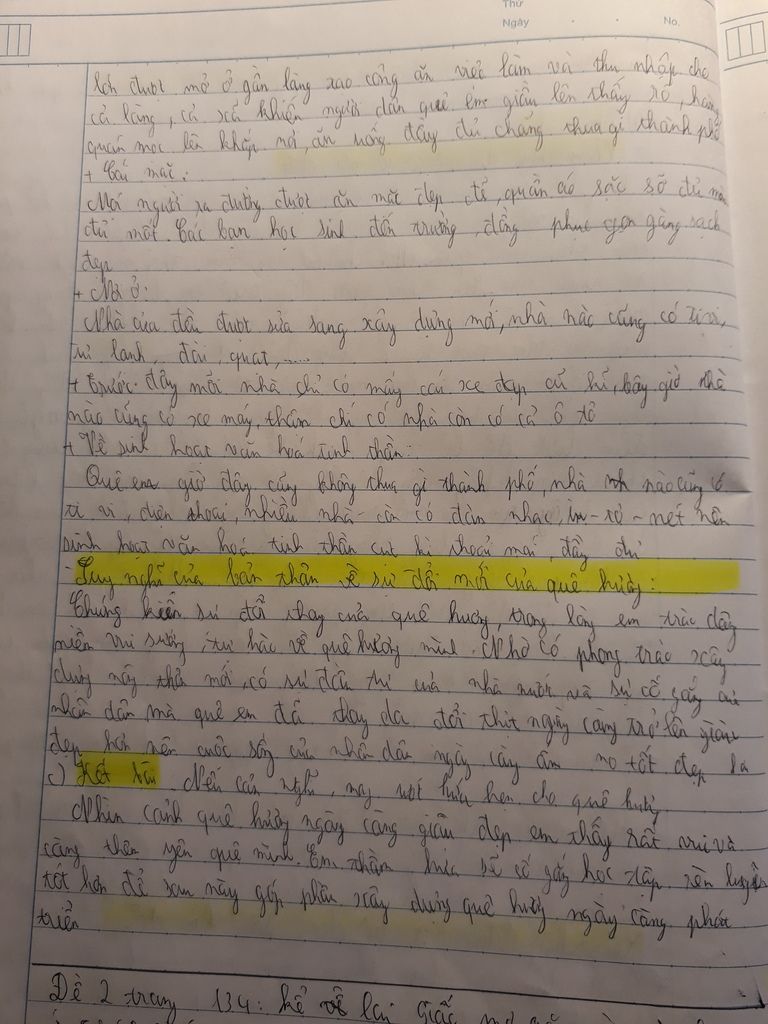 Thứ
Ngày . . No.
ích được mở ở gần làng xao công ăn việc làm và thu nhập cho
cả làng, cả xã khiến người dân quê em giầu lên thấy rõ, hàng
quán mọc lên khắp nơi, ăn uống đầy đủ chẳng thua gì thành phố
+ Cái mặc:
Mọi người ra đường được ăn mặc đẹp đẽ, quần áo sặc sỡ đủ màu
đủ mốt. Các bạn học sinh đến trường, đồng phục gọn gàng sạch
đẹp
+ Nơi ở:
Nhà cửa đều được sửa sang xây dựng mới, nhà nào cũng có ti vi,
tủ lạnh, đài, quạt,......
+ Trước đây mỗi nhà chỉ có mấy cái xe đạp cũ kĩ, bây giờ nhà
nào cũng có xe máy, thậm chí có nhà còn có cả ô tô
+ Về sinh hoạt văn hoá tinh thần:
Quê em giờ đây cũng không thua gì thành phố, nhà nào cũng có
ti vi, điện thoại, nhiều nhà còn có dàn nhạc, in-tơ-nét nên
sinh hoạt văn hoá tinh thần cực kì thoải mái, đầy đủ
- Suy nghĩ của bản thân về sự đổi mới của quê hương:
Chứng kiến sự đổi thay của quê hương, trong lòng em trào dâng
niềm vui sướng, tự hào về quê hương mình. Nhờ có phong trào xây
dựng nông thôn mới, có sự đầu tư của nhà nước và sự cố gắng của
nhân dân mà quê em đã thay da đổi thịt ngày càng trở lên giàu
đẹp hơn nên cuộc sống của nhân dân ngày càng ấm no tốt đẹp
c) Kết bài Nêu cảm nghĩ, hứa hẹn cho quê hương
Nhìn cảnh quê hương ngày càng giầu đẹp em thấy rất vui và
càng thêm yêu quê mình. Em thầm hứa sẽ cố gắng học tập, rèn luyện
tốt hơn để sau này góp phần xây dựng quê hương ngày càng phát
triển
Đề 2 trang 134: kể về lại giấc mơ